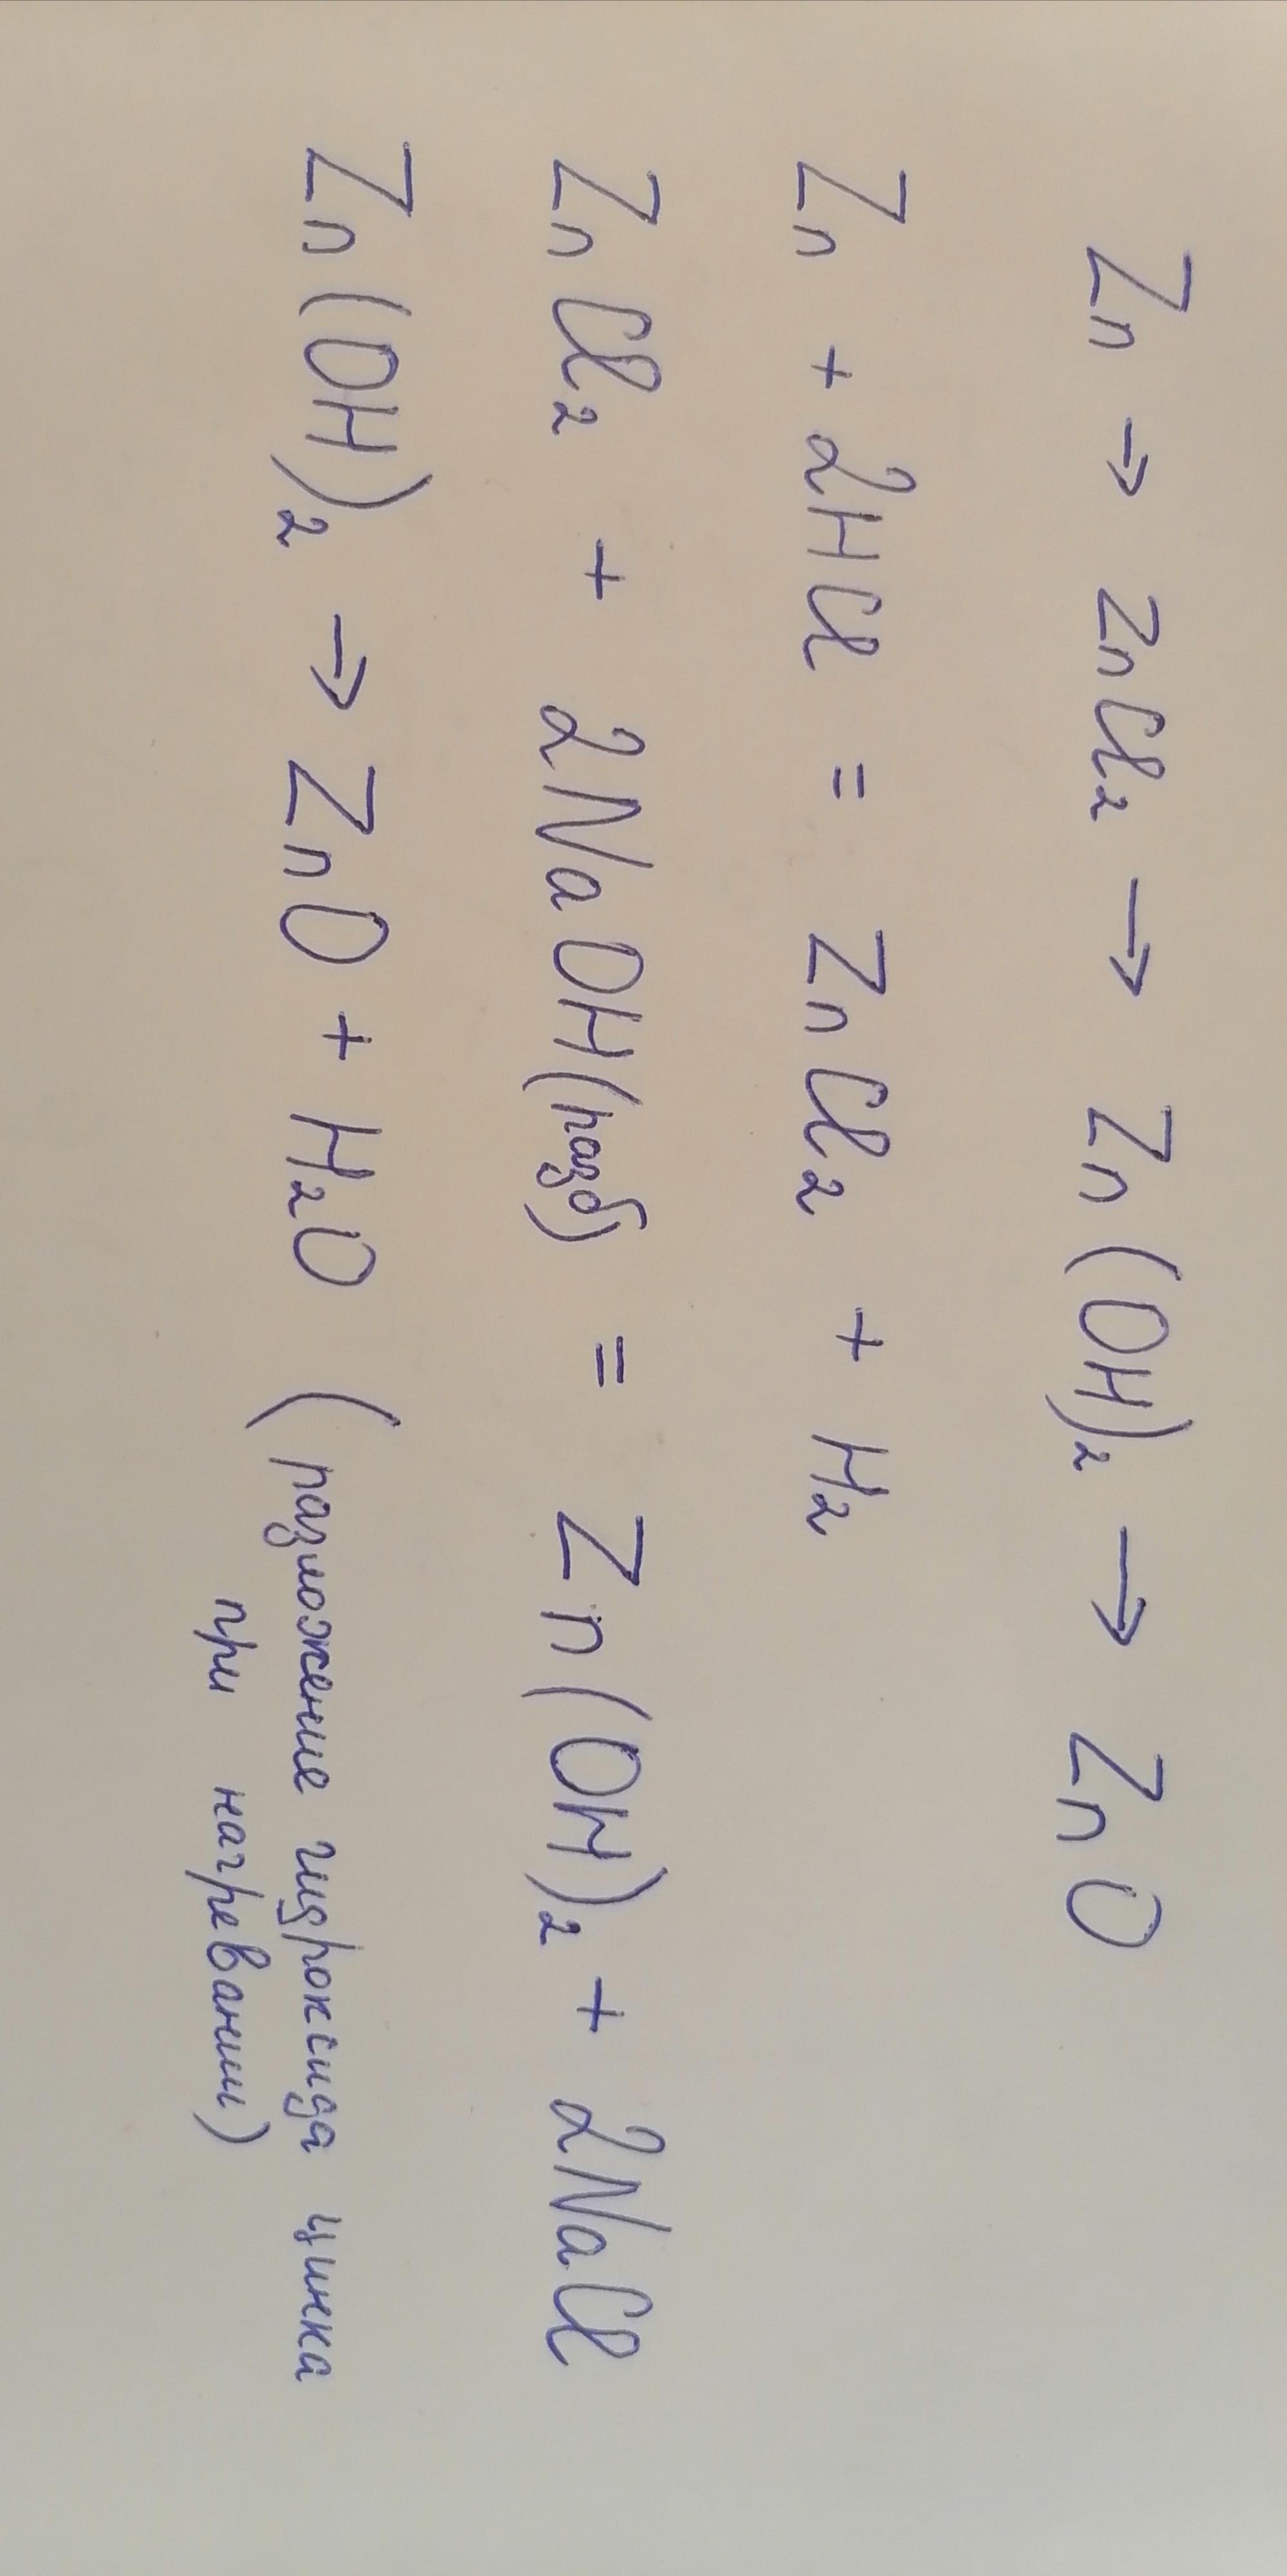 Zn → ZnCl₂ → Zn(OH)₂ → ZnO
Zn + 2HCl = ZnCl₂ + H₂
ZnCl₂ + 2NaOH(разб) = Zn(OH)₂ + 2NaCl
Zn(OH)₂ → ZnO + H₂O (разложение гидроксида цинка
при нагревании)